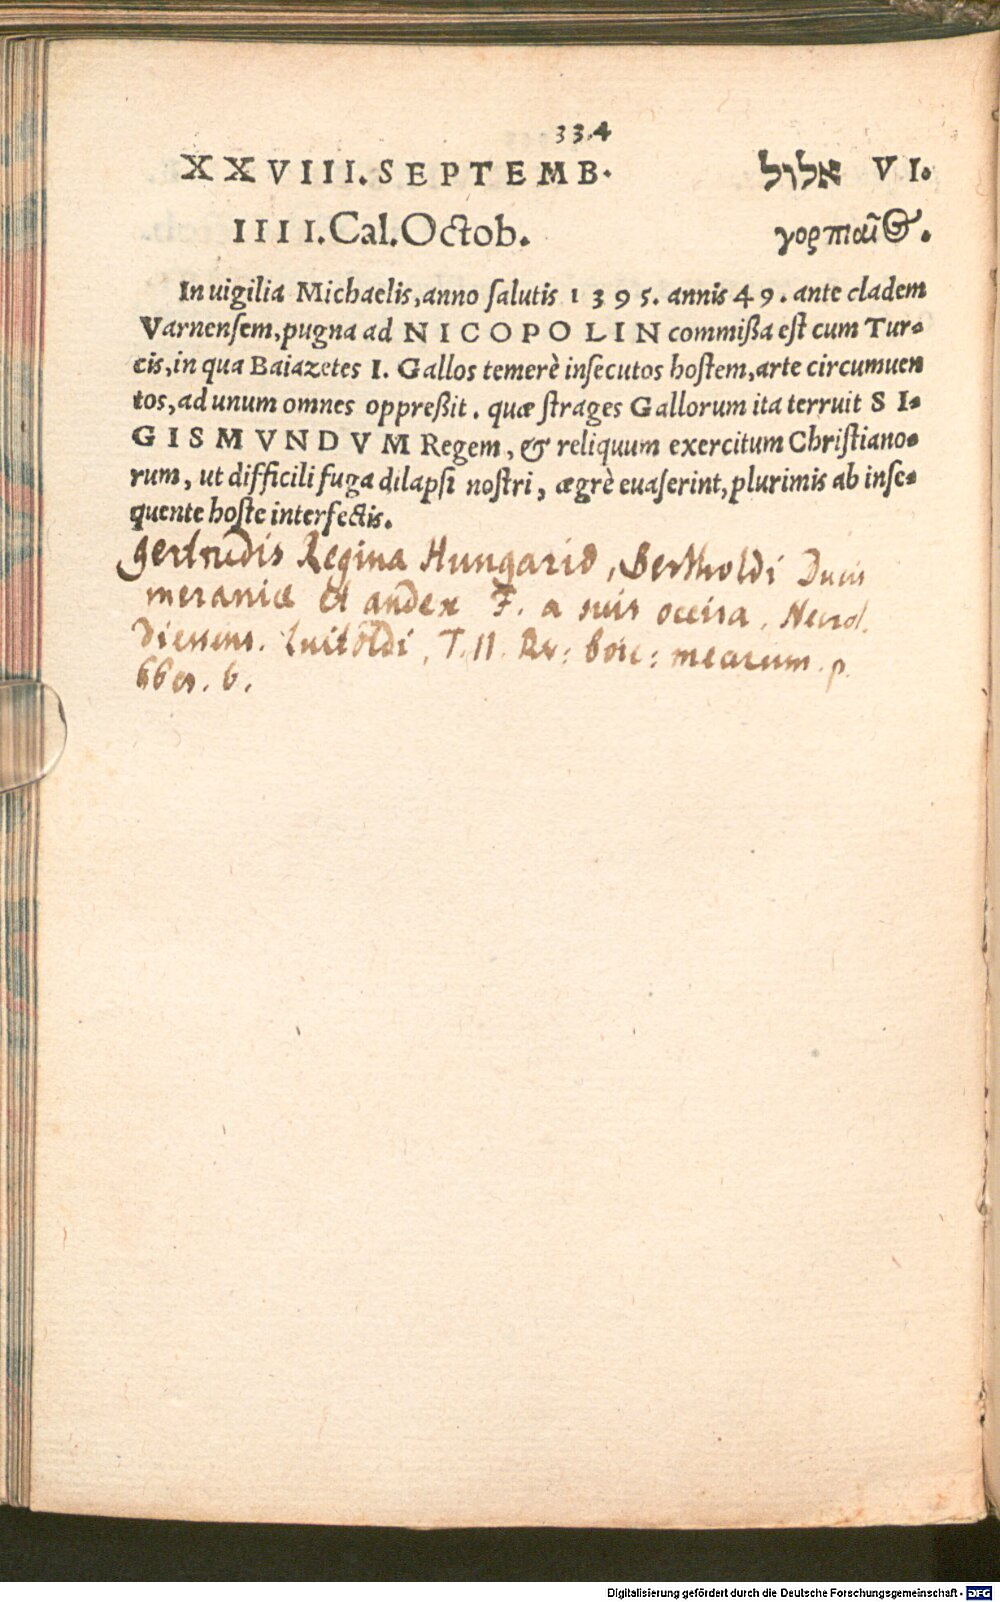 334
XXVIII. SEPTEMB. אלול VI.
IIII. Cal. Octob. γορπιαῖ⊕.
In uigilia Michaelis, anno salutis 1395. annis 49. ante cladem
Varnensem, pugna ad NICOPOLIN commißa est cum Tur-
cis, in qua Baiazetes I. Gallos temerè insecutos hostem, arte circumuen
tos, ad unum omnes oppreßit. quæ strages Gallorum ita terruit SI-
GISMVNDVM Regem, & reliquum exercitum Christiano-
rum, ut difficili fuga dilapsi nostri, ægrè euaserint, plurimis ab inse-
quente hoste interfectis.
Gertrudis Regina Hungariæ, Bertholdi Ducis
meraniæ et andex F. a suis occisa. Necrol.
Diessens. T. II. Rer: boic: mearum. p.
b.
Digitalisierung gefördert durch die Deutsche Forschungsgemeinschaft - DFG